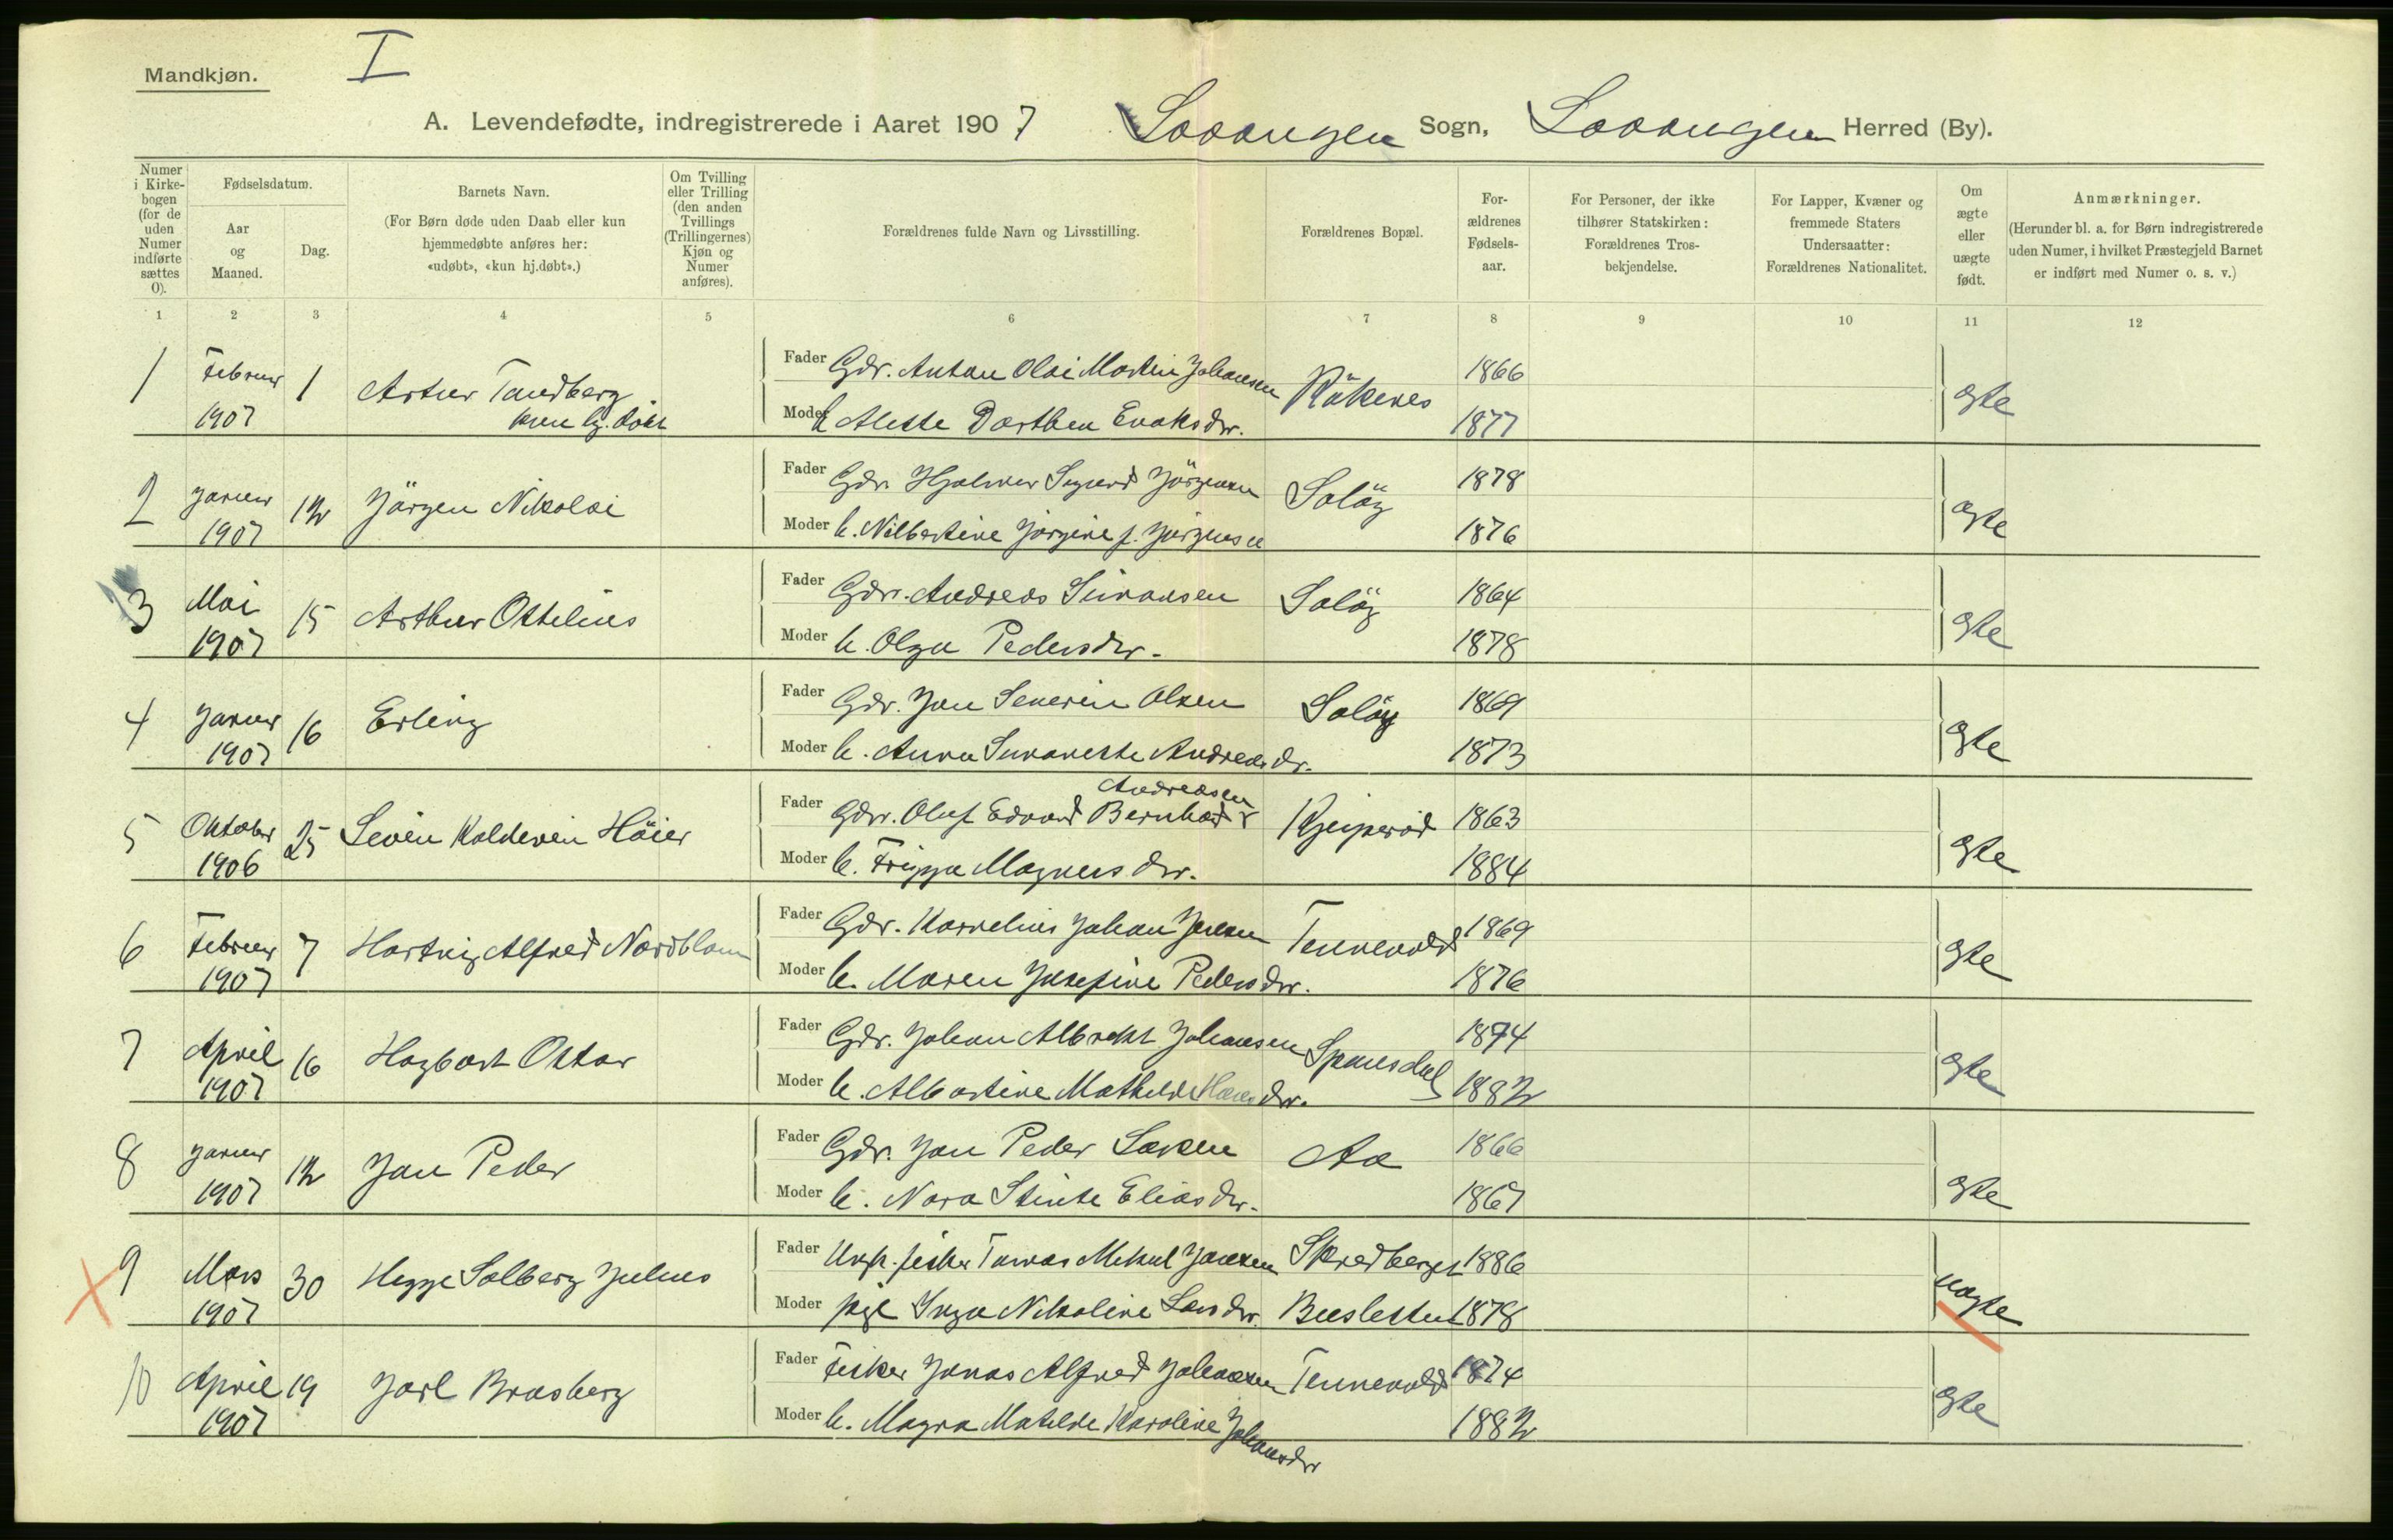 Mandkjøn.
I
A. Levendefødte, indregistrerede i Aaret 1907 Lavangen Sogn, Lavangen Herred (By).
Numer i Kirkebogen (for de uden Numer indførte sættes 0).
Fødselsdatum.
Aar og Maaned.
Dag.
Barnets Navn.
(For Børn døde uden Daab eller kun hjemmedøbte anføres her: «udøbt», «kun hj.døbt».)
Om Tvilling eller Trilling (den anden Tvillings (Trillingernes) Kjøn og Numer anføres).
Forældrenes fulde Navn og Livsstilling.
Forældrenes Bopæl.
Forældrenes Fødselsaar.
For Personer, der ikke tilhører Statskirken: Forældrenes Trosbekjendelse.
For Lapper, Kvæner og fremmede Staters Undersaatter: Forældrenes Nationalitet.
Om ægte eller uægte født.
Anmærkninger.
(Herunder bl. a. for Børn indregistrerede uden Numer, i hvilket Præstegjeld Barnet er indført med Numer o. s. v.)
1 2 3 4 5 6 7 8 9 10 11 12
1 Februar 1907 1 Artur Tandberg kun hj. døbt
Fader Gdr. Anton Olai Martin Johansen Røkenes 1866
Moder h. Alette Dorthea Enoksdtr. 1877 ægte
2 Januar 1907 12 Jörgen Nikolai
Fader Gdr. Hjalmar Sigurd Jörgensen Soløy 1878
Moder h. Nilbertine Jörgine f. Jörgensen 1876 ægte
3 Mai 1907 15 Arthur Ottelius
Fader Gdr. Andreas Simonsen Soløy 1864
Moder h. Olga Pedersdtr. 1878 ægte
4 Januar 1907 16 Erling
Fader Gdr. Jon Severin Olsen Soløy 1869
Moder h. Anna Susanette Andreasdr. 1873 ægte
5 Oktober 1906 25 Sevin Koldevin Höier
Andreasen
Fader Gdr. Oluf Edvard Bernhard 1863
Moder h. Frigga Magnusdtr. 1884 ægte
6 Februar 1907 7 Hartvig Alfred Nordblom
Fader Gdr. Kornelius Johan Jensen Tennevold 1869
Moder h. Maren Josefine Pedersdtr. 1876 ægte
7 April 1907 16 Hagbart Ottar
Fader Gdr. Johan Albrekt Johansen Spansdal 1874
Moder h. Albertine Mathilde Hansdtr. 1882 ægte
8 Januar 1907 12 Jon Peder
Fader Gdr. Jon Peder Larsen Aa 1866
Moder h. Nora Stinte Eliasdtr. 1867 ægte
9 Mars 1907 30 Hegge Solberg Julius
Fader Ungk. fisker Tomas Mekal Jonsen Skredberget 1886
Moder pige Inga Nikoline Larsdtr. Busletten 1878 uægte
10 April 1907 19 Jarl Brasberg
Fader Fisker Jonas Alfred Johansen Tennevold 1874
Moder h. Magna Matilde Karoline Johansdtr 1882 ægte